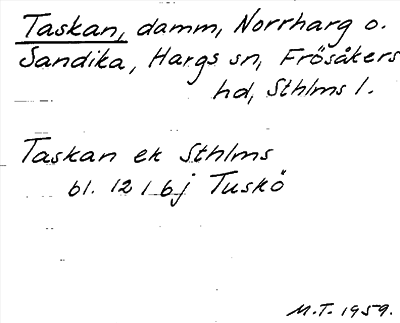 Taskan, damm, Norrharg o.
Sandika, Hargs sn, Frösåkers
hd, Sthlms l.
Taskan ek Sthlms
bl. 121 bj Tuskö
M.T. 1959.